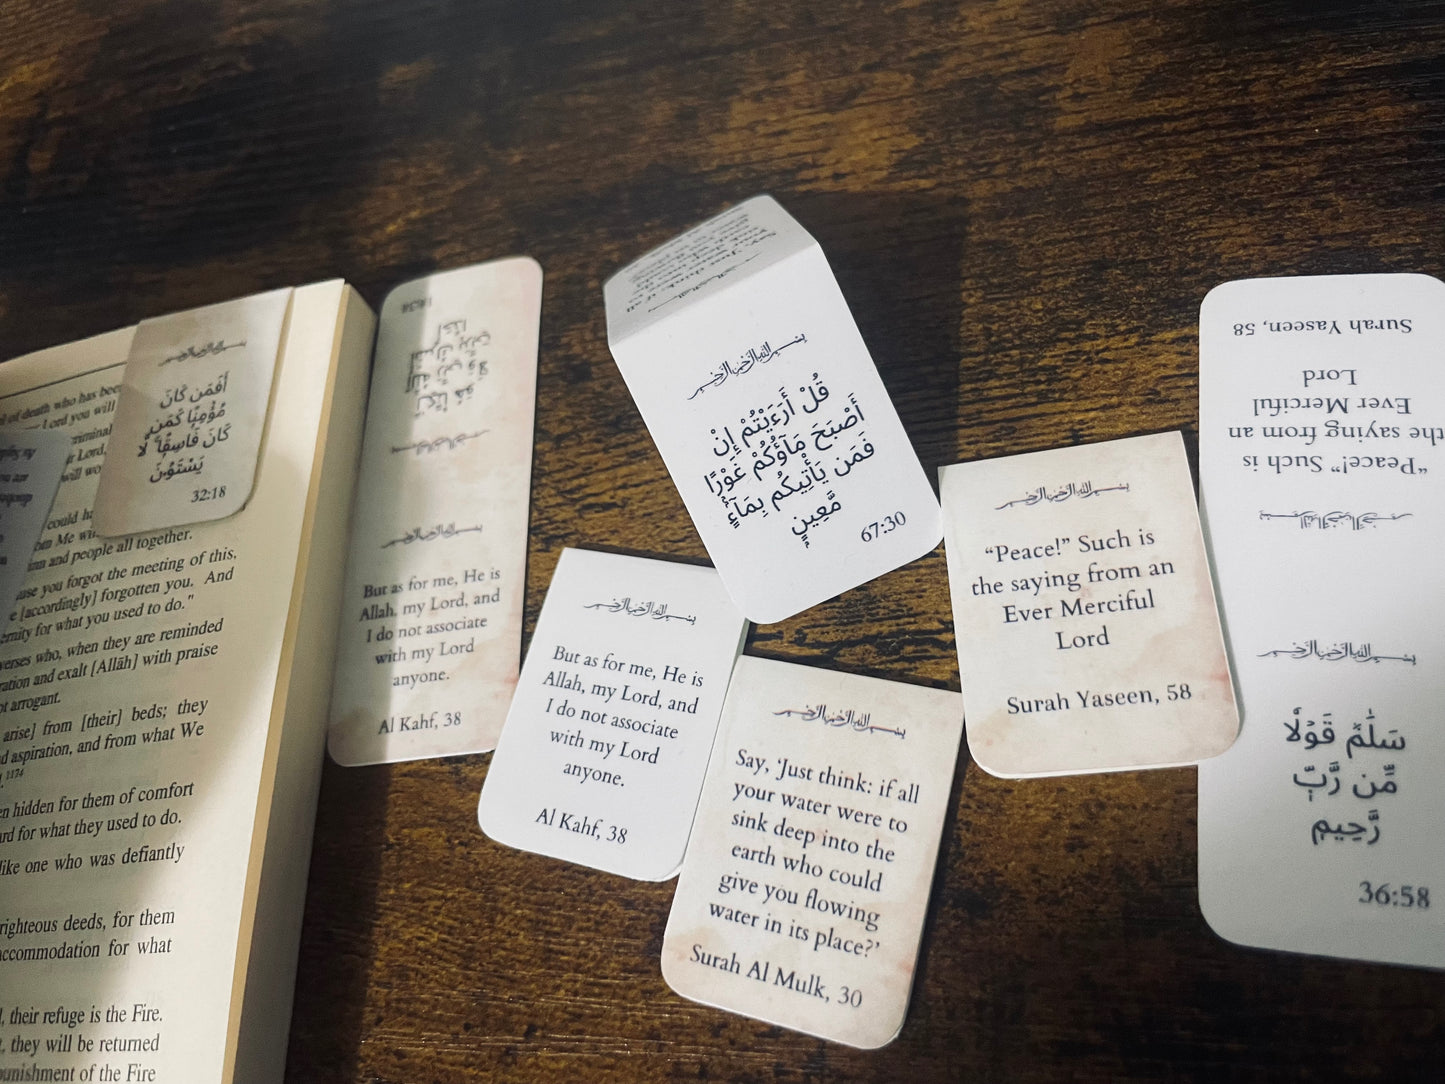 of death who has been
Lord you will
criminals
r Lord,
will wo
could ha
om Me wi
inn and people all together.
use you forgot the meeting of this,
e [accordingly] forgotten you. And
ernity for what you used to do."
verses who, when they are reminded
ration and exalt [Allāh] with praise
ot arrogant.
arise] from [their] beds; they
d aspiration, and from what We
1174
en hidden for them of comfort
ard for what they used to do.
like one who was defiantly
righteous deeds, for them
accommodation for what
l, their refuge is the Fire.
t, they will be returned
punishment of the Fire
بسم الله الرحمن الرحيم
أَفَمَن كَانَ
مُؤْمِنًا كَمَن
كَانَ فَاسِقًا ۚ لَّا
يَسْتَوُۥنَ
32:18
18:38
بسم الله الرحمن الرحيم
But as for me, He is
Allah, my Lord, and
I do not associate
with my Lord
anyone.
Al Kahf, 38
بسم الله الرحمن الرحيم
But as for me, He is
Allah, my Lord, and
I do not associate
with my Lord
anyone.
Al Kahf, 38
Say, 'Just think: if all
بسم الله الرحمن الرحيم
قُلْ أَرَءَيْتُمْ إِنْ
أَصْبَحَ مَآؤُكُمْ غَوْرًا
فَمَن يَأْتِيكُم بِمَآءٍۢ
مَّعِينٍۭ
67:30
بسم الله الرحمن الرحيم
Say, 'Just think: if all
your water were to
sink deep into the
earth who could
give you flowing
water in its place?'
Surah Al Mulk, 30
بسم الله الرحمن الرحيم
“Peace!” Such is
the saying from an
Ever Merciful
Lord
Surah Yaseen, 58
بسم الله الرحمن الرحيم
“Peace!” Such is
the saying from an
Ever Merciful
Lord
Surah Yaseen, 58
بسم الله الرحمن الرحيم
سَلَٰمٌ قَوْلًا
مِّن رَّبٍّ
رَّحِيمٍ
36:58